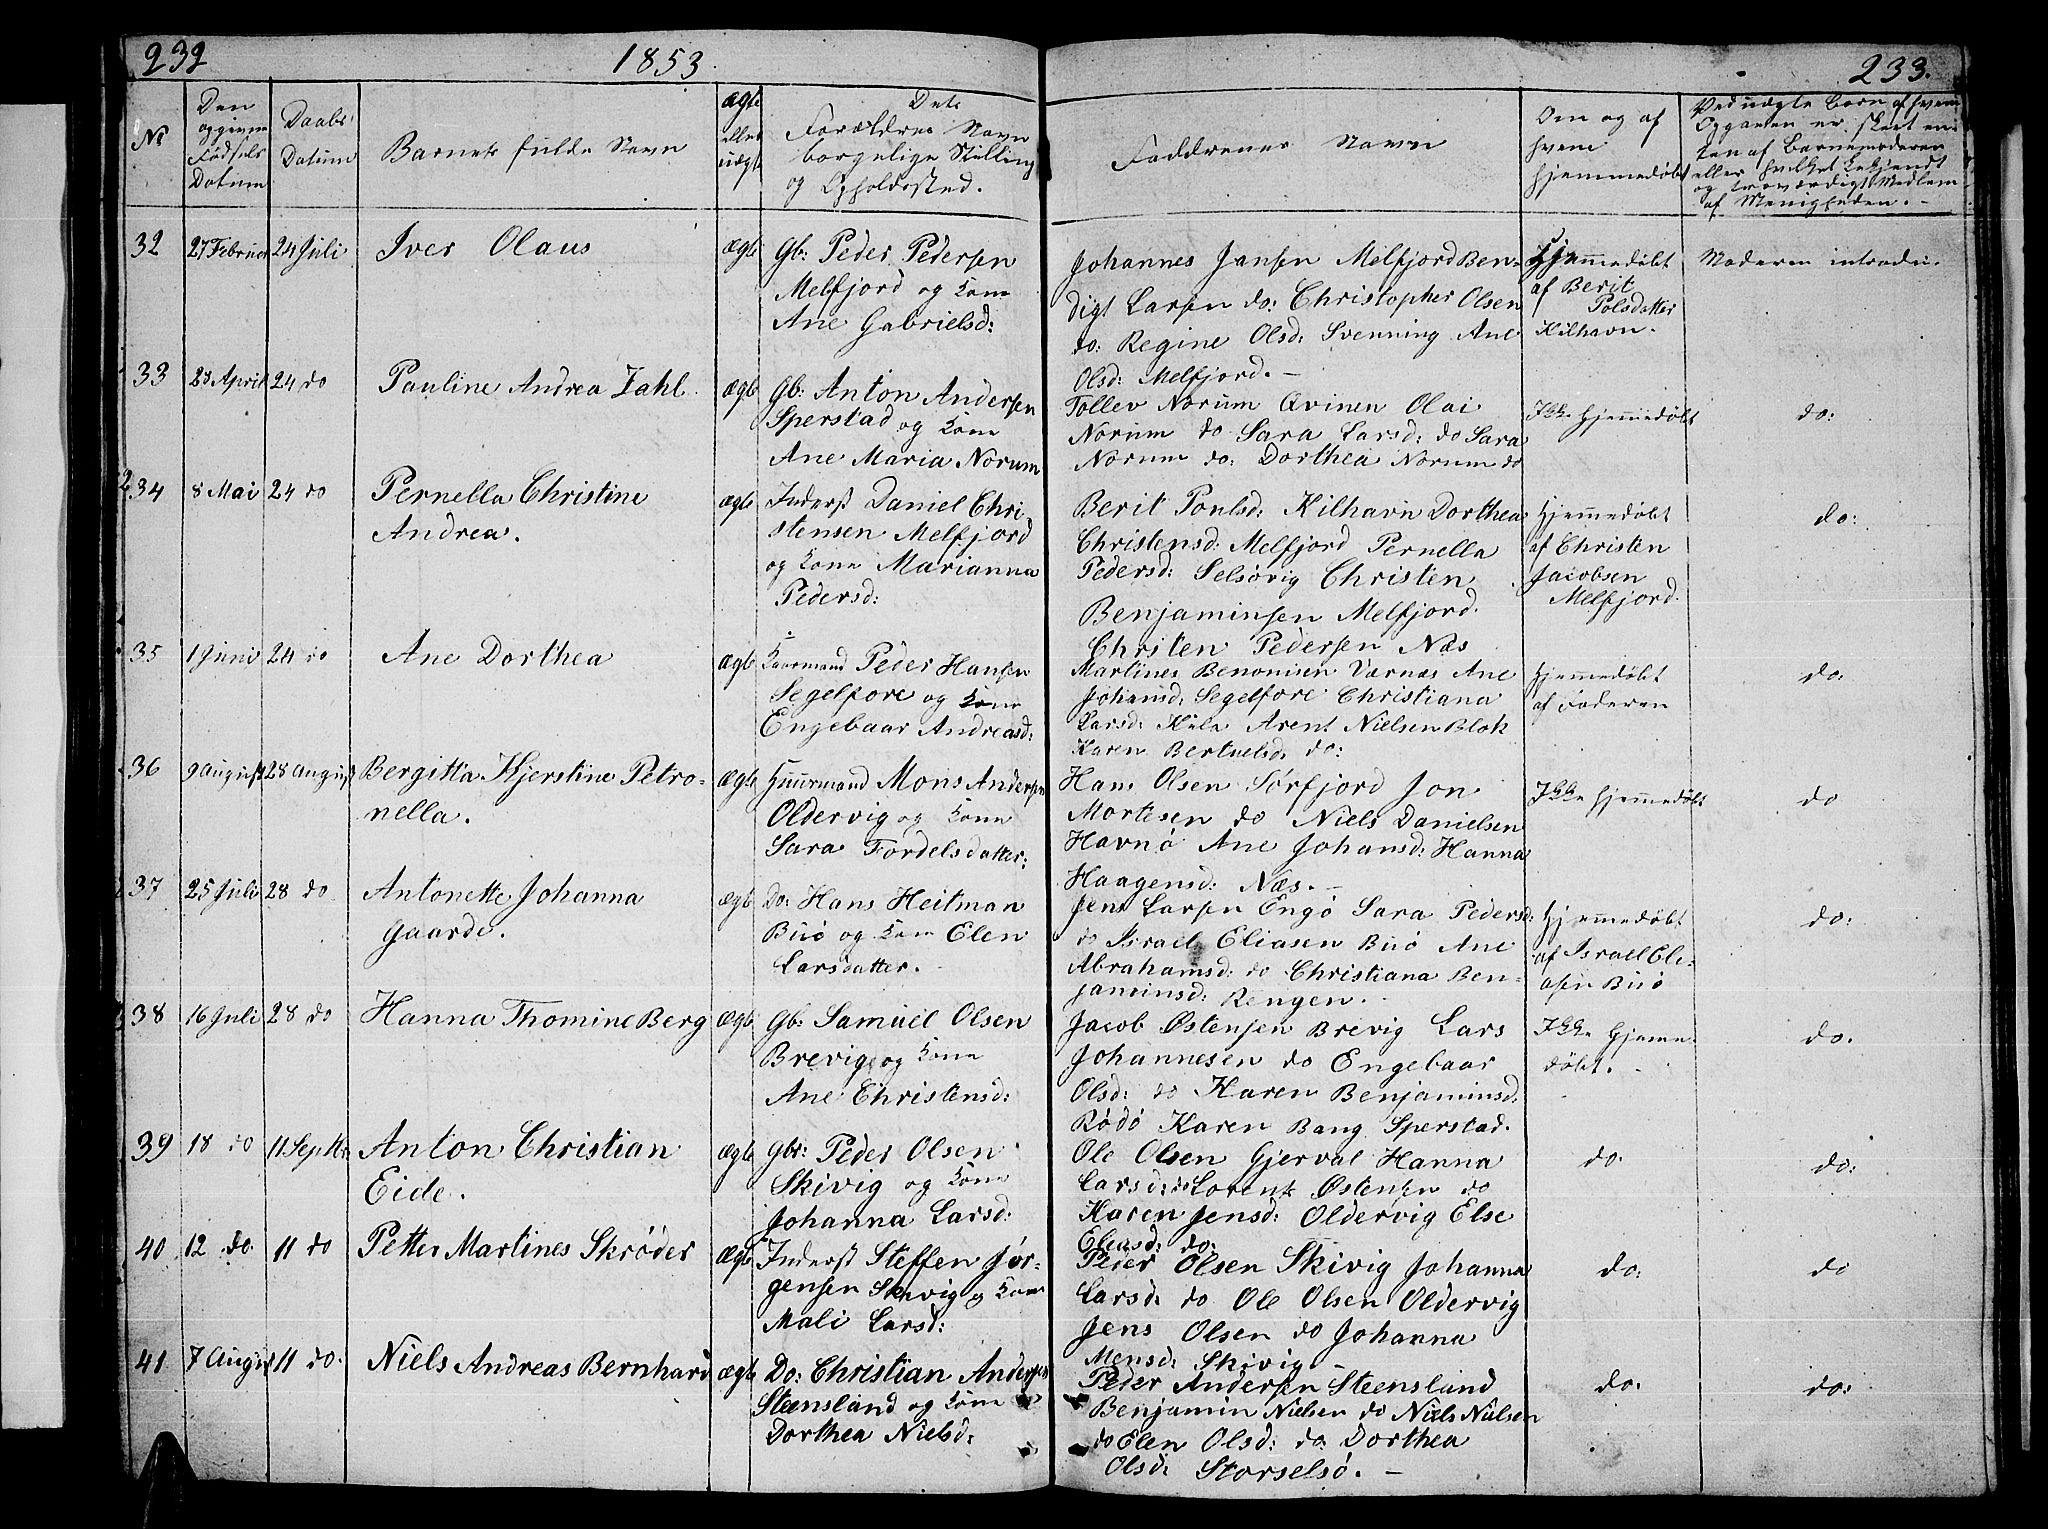 232
1853.
233.
No
Den opgivne Fødsels Datum
Daabs Datum
Barnets fulde Navn
ægte eller uægte
Dets Forældres Navn borgelige Stilling og Opholdssted.
Faddrenes Navn
Om og af hvem hjemmedøbt
Ved uægte Børn af hvem Opgaven er skeet enten af Barnemoderen eller hvilket bekjendt og troværdigt Medlem af Menigheden.
32 27 Februar 24 Juli Iver Olaus ægte Gb: Peder Pedersen
Melfjord og Kone
Ane Gabrielsd:
Johannes Jansen Melfjord Ben-
digt Larsen do: Christopher Olsen
do: Regine Olsd: Svenning Ane
Olsd: Melfjord. —
Hjemmedøbt
af Berit
Polsdatter
Kilhavn.
Moderen introdu.
33 28 April 24 do Pauline Andrea Zahl ægte Gb: Anton Andersen
Sperstad og Kone
Ane Maria Norum
Tollev Norum Qvinen Olai
Norum do Sara Larsd: do Sara
Norum do: Dorthea Norum do
Ikke hjemmedøbt
do:
34 8 Mai 24 do Pernella Christine
Andrea.
ægte Inderst Daniel Chri-
stensen Melfjord
og Kone Marianna
Pedersd:
Berit Poulsd: Kilhavn Dorthea
Christensd: Melfjord Pernella
Pedersd: Selsøvig Christen
Benjaminsen Melfjord.
Christen Pedersen Næs
Hjemmedøbt
af Christen
Jacobsen
Melfjord.
do:
35 1 Juni 24 do Ane Dorthea
ægte Kaarmand Peder Hansen
Segelfore og Kone
Engebaar Andreasd:
Martines Benonisen Værnæs Ane
Johansd: Segelfore Christiana
Larsd: Kila Arent Nielsen Blok
Karen Bertuelsd: do:
Hjemmedøbt
af Faderen
do:
36 9 August 28 August Bergitta Kjerstine Petro-
nella.
ægte Huurmand Mons Andersen
Oldervig og Kone
Sara Tordelsdatter:
Hans Olsen Sørfjord Jon
Mortesen do Niels Danielsen
Havnø Ane Johansd: Hanna
Haagensd: Næs. —
Ikke hjemmedøbt
do
37 25 Juli 28 do Antonette Johanna
Gaarde.
ægte Do: Hans Heitman
Buø og Kone Elen
Larsdatter. -
Jens Larsen Engø Sara Pedersd:
do Israel Eliasen Buø Ane
Abrahamsd: do Christiana Ben-
jaminsd: Rengen.
Hjemmedøbt
af Israel Eli-
asen Buø
do:
38 16 Juli 28 do Hanna Thomine Berg ægte Gb: Samuel Olsen
Brevig og Kone
Ane Christensd:
Jacob Østensen Brevig Lars
Johannesen do Engebaar
Olsd: do Karen Benjaminsd:
Rødø Karen Bang Sperstad.
Ikke hjemme-
døbt.
do.
39 18 do 11 Septbr Anton Christian
Eide.
ægte Gbr: Peder Olsen
Skivig og Kone
Johanna Larsd:
Ole Olsen Gjerval Hanna
Larsd: do Lorents Østensen do
Karen Jensd: Oldervig Else
Eliasd: do:
do:
do:
40 12 do. 11 do Petter Martines Skrøder ægte Inderst Steffen Jør-
gensen Skivig og Kone
Mali Larsd:
Peder Olsen Skivig Johanna
Larsd: do Ole Olsen Oldervig
Jens Olsen do Johanna
Monsd: Skivig
do:
do
41 7 August 11 do. Niels Andreas Bernhard ægte Do: Christian Andersen
Steensland og Kone
Dorthea Nielsd:
Peder Andersen Steensland
Benjamin Nielsen do Niels Nielsen
do Elen Olsd: do Dorthea
Olsd: Storselsø. —
do:
do: